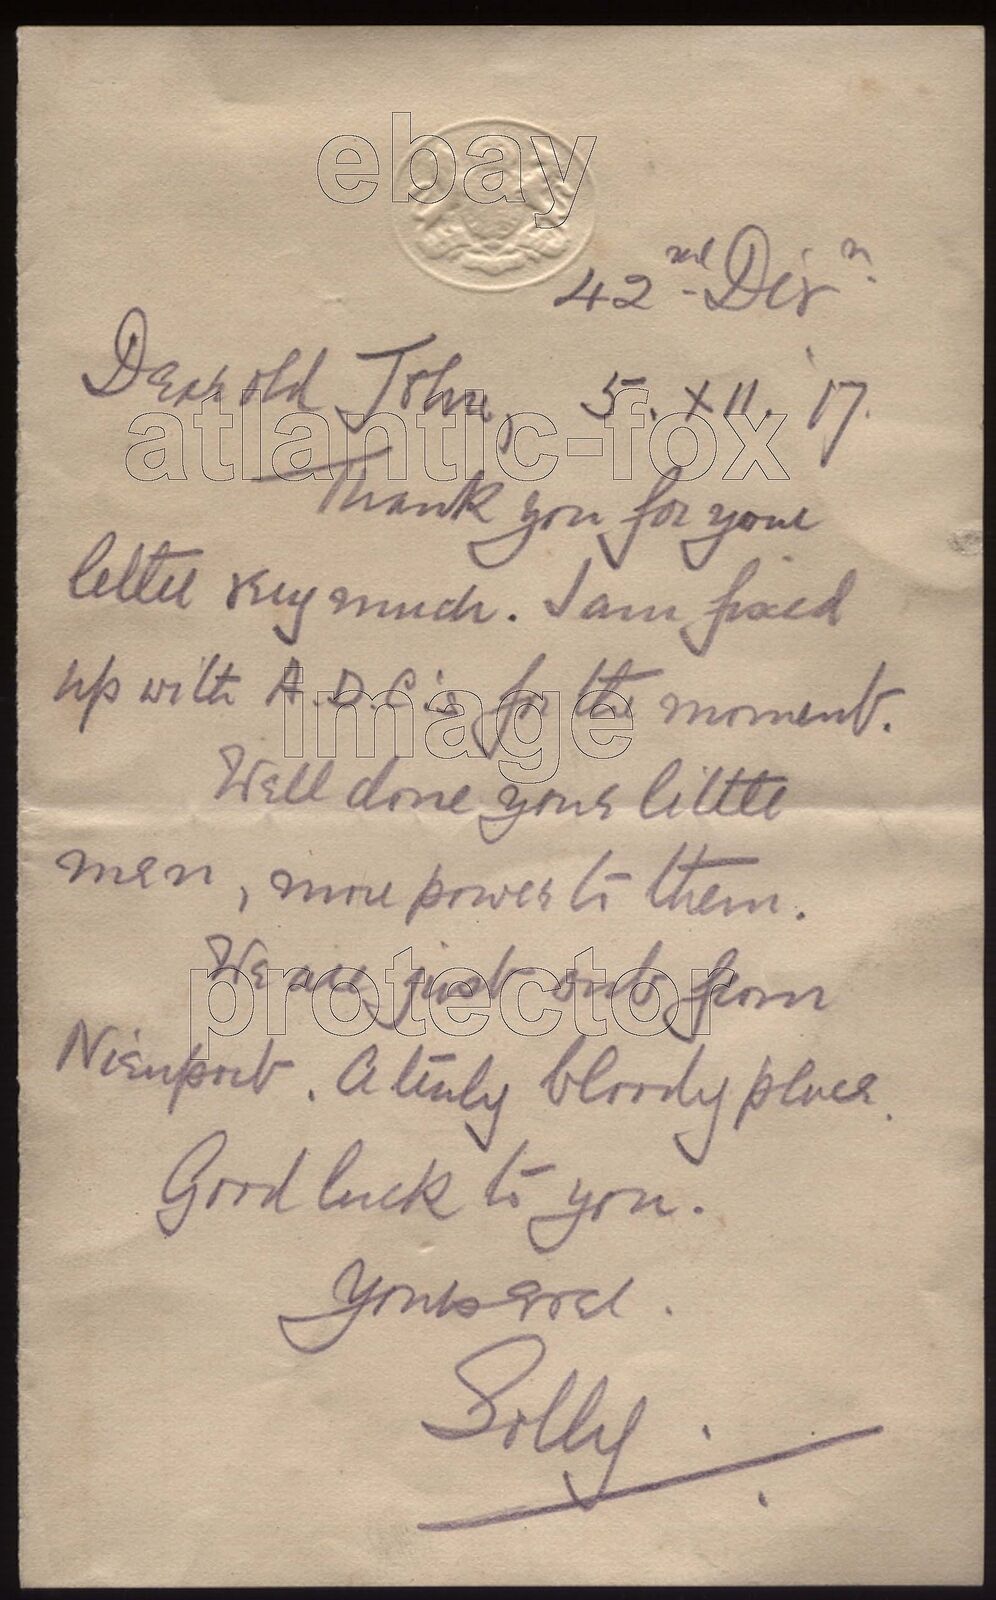 ebay
42nd Divn.
Dear old John, 5. XII. '17.
atlantic-fox
Thank you for your
letter very much. I am fixed
up with A.D.C's for the moment.
image
Well done your little
men, more power to them.
We are just out from
protector
Nieuport. A truly bloody place.
Good luck to you.
Yours ever.
Solly.